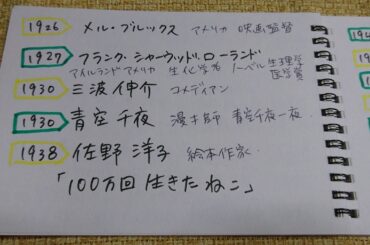 1926 メル・ブルックス アメリカ 映画監督
1927 フランク・シャーウッド・ローランド
アイルランドアメリカ 生化学者 ノーベル生理学医学賞
1930 三波伸介 コメディアン
1930 青空千夜 漫才師 青空千夜一夜.
1938 佐野洋子 絵本作家.
「100万回生きたねこ」